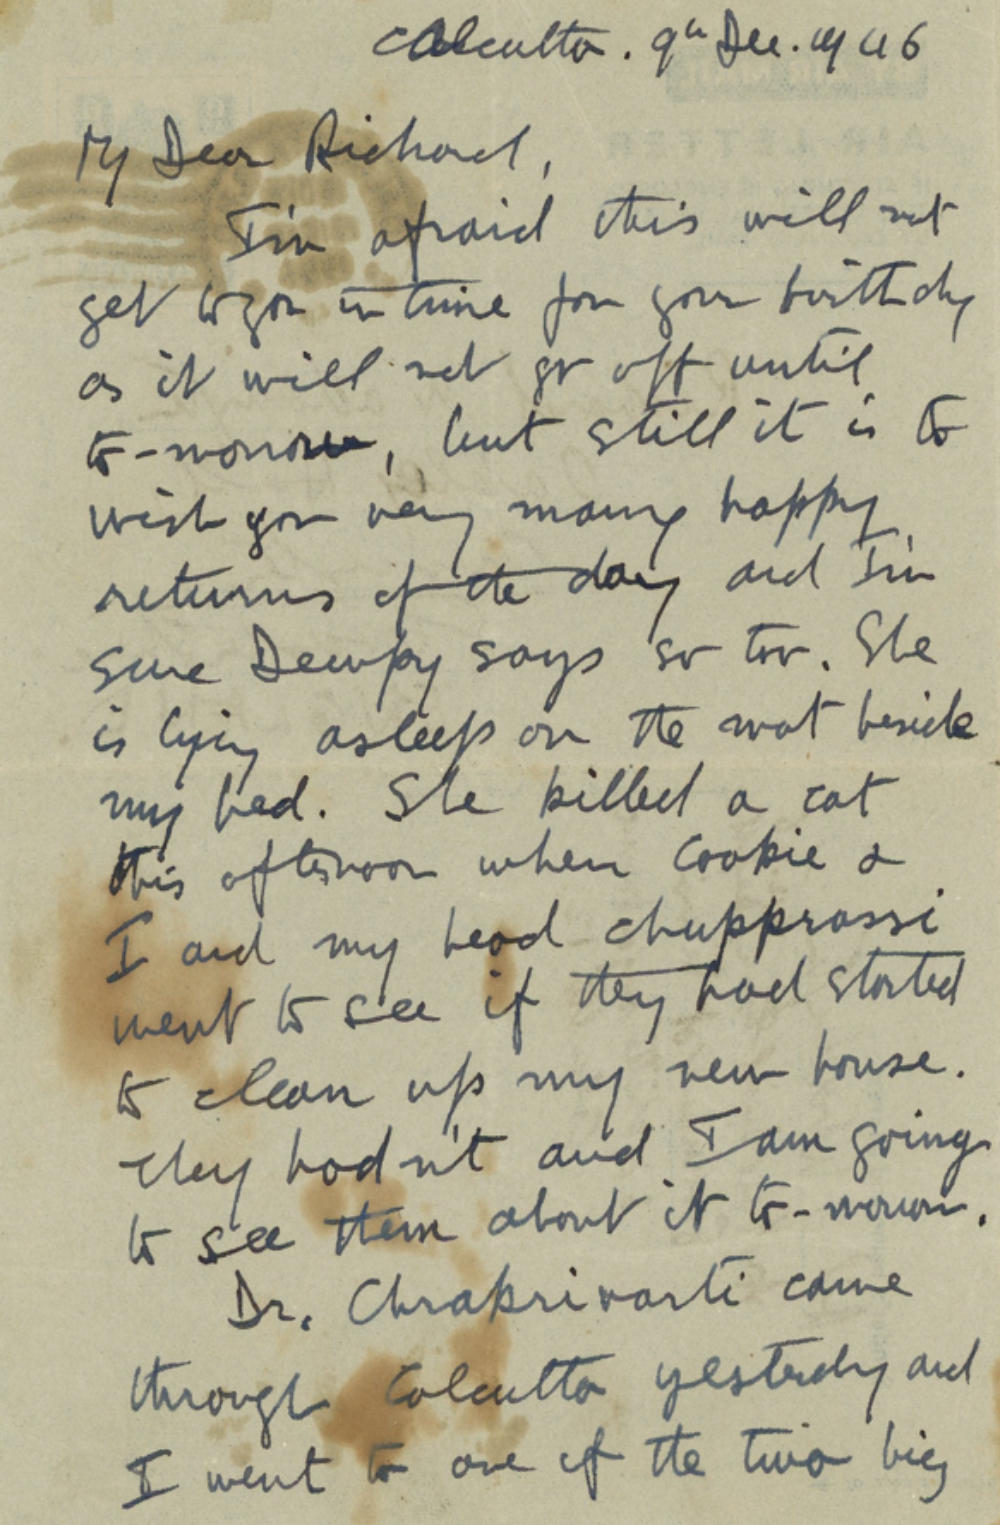 Calcutta. 9th Dec. 1946
My Dear Richard,
I'm afraid this will not
get to you in time for your birthday
as it will not go off until
to-morrow, but still it is to
wish you very many happy
returns of the day and I'm
sure Dewpy says so too. She
is lying asleep on the mat beside
my bed. She killed a cat
this afternoon when Cookie &
I and my head chupprassi
went to see if they had started
to clean up my new house.
They hadn't and I am going
to see them about it to-morrow.
Dr. Chrakrivarti came
through Calcutta yesterday and
I went to one of the two big